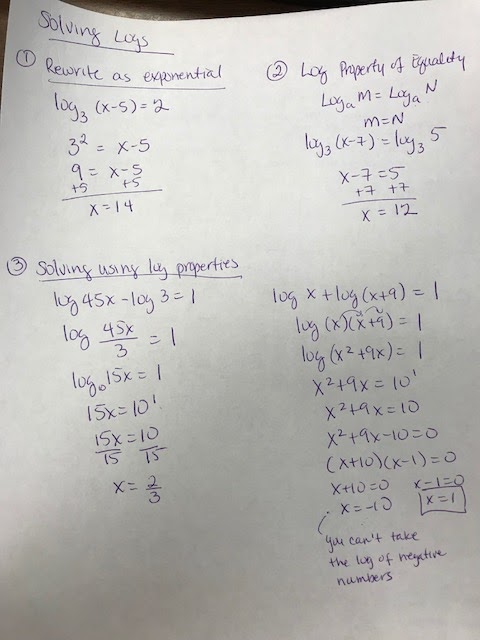 Solving Logs
① Rewrite as exponential
log₃ (x-5) = 2
3² = x-5
9 = x-5
+5 +5
x = 14
② Log Property of Equality
Logₐ M = Logₐ N
M = N
log₃ (x-7) = log₃ 5
x-7 = 5
+7 +7
x = 12
③ Solving using log properties
log 45x - log 3 = 1
log 45x/3 = 1
log₁₀ 15x = 1
15x = 10¹
15x/15 = 10/15
x = 2/3
log x + log (x+9) = 1
log (x)(x+9) = 1
log (x² + 9x) = 1
x² + 9x = 10¹
x² + 9x = 10
x² + 9x - 10 = 0
(x+10)(x-1) = 0
x+10 = 0 x-1 = 0
x = -10 x = 1
you can't take
the log of negative
numbers